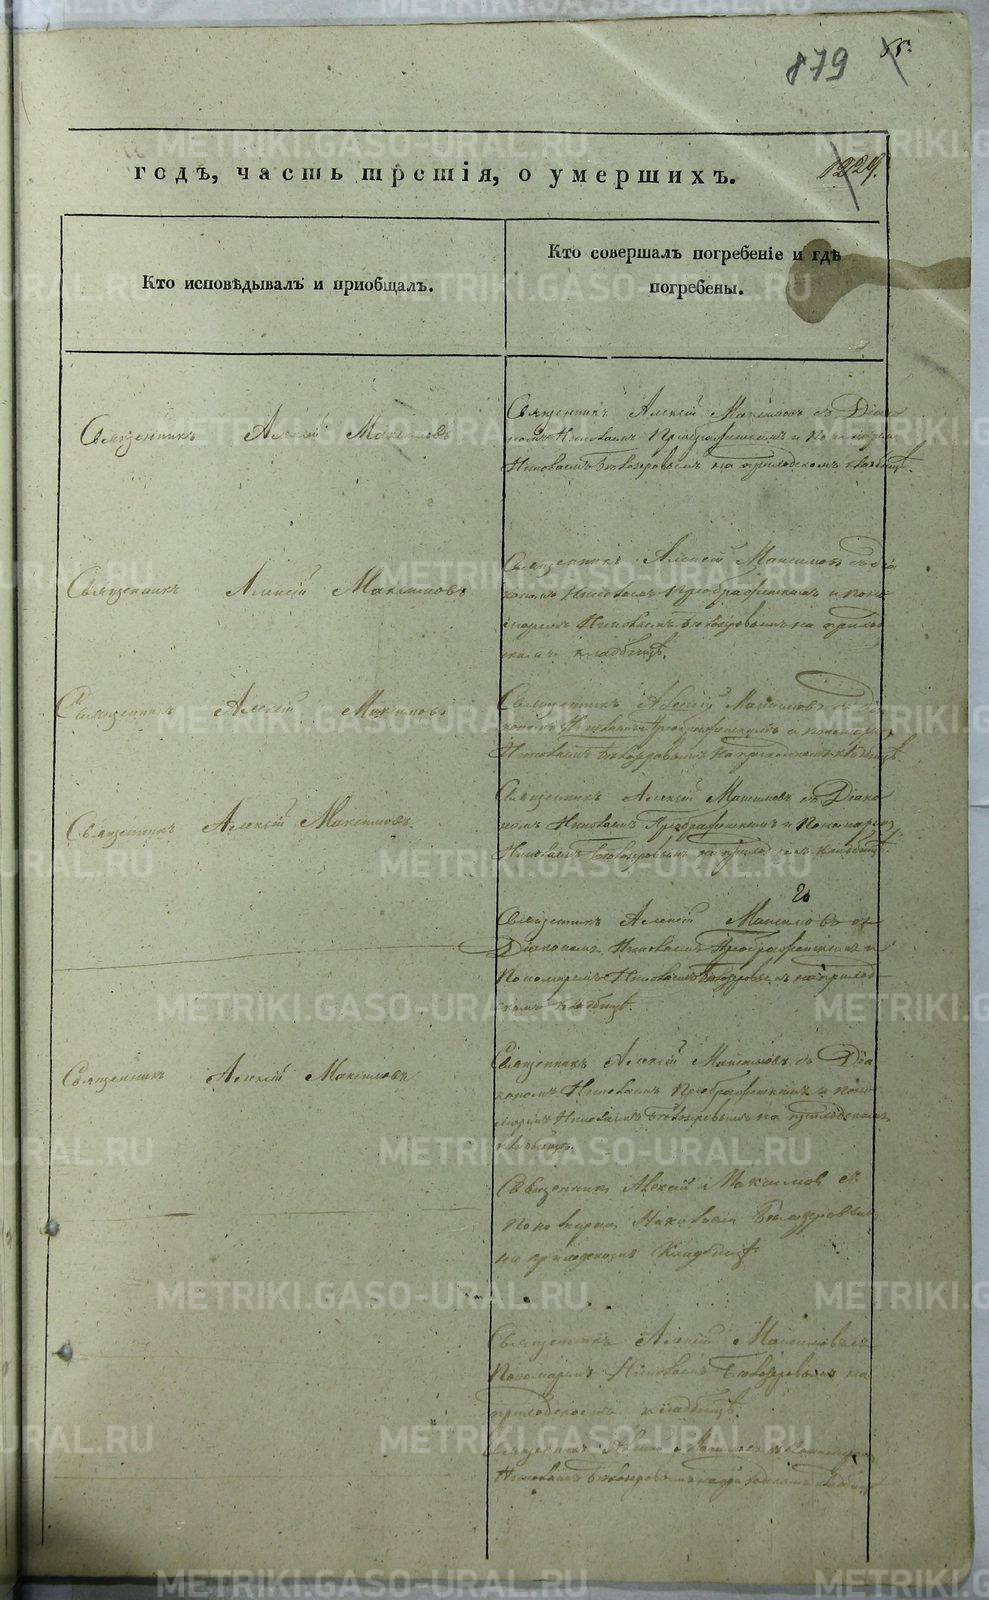 879
85.
годъ, часть третія, о умершихъ.
1229.
Кто исповѣдывалъ и пріобщалъ.
Кто совершалъ погребеніе и гдѣ
погребены.
Священникъ Алексій Максимовъ
Священникъ Алексій Максимовъ съ Діако
номъ Николаемъ Преображенскимъ и Пономаремъ
Николаемъ Бѣлозеровымъ на приходскомъ кладбищѣ.
Священникъ Алексій Максимовъ
Священникъ Алексій Максимовъ съ Діа
кономъ Николаемъ Преображенскимъ и Поно
маремъ Николаемъ Бѣлозеровымъ на приход
скомъ кладбищѣ.
Священникъ Алексій Максимовъ
Священникъ Алексій Максимовъ съ Діа
кономъ Николаемъ Преображенскимъ и пономаремъ
Николаемъ Бѣлозеровымъ на приходскомъ кладбищѣ
Священникъ Алексій Максимовъ
Священникъ Алексій Максимовъ съ Діако
номъ Николаемъ Преображенскимъ и Пономаремъ
Николаемъ Бѣлозеровымъ на приходскомъ кладбищѣ.
Священникъ Алексій Максимовъ съ
Діакономъ Николаемъ Преображенскимъ и
Пономаремъ Николаемъ Бѣлозеровымъ на приход
скомъ кладбищѣ.
Священникъ Алексій Максимовъ
Священникъ Алексій Максимовъ съ Діа
кономъ Николаемъ Преображенскимъ и Поно
маремъ Николаемъ Бѣлозеровымъ на приходскомъ
кладбищѣ.
Священникъ Алексій Максимовъ съ
Пономаремъ Николаемъ Бѣлозеровымъ
на приходскомъ Кладбищѣ
Священникъ Алексій Максимовъ съ
Пономаремъ Николаемъ Бѣлозеровымъ на
приходскомъ кладбищѣ.
Священникъ Алексій Максимовъ съ Пономаремъ
Николаемъ Бѣлозеровымъ на приходскомъ кладбищѣ
METRIKI.GASO-URAL.RU